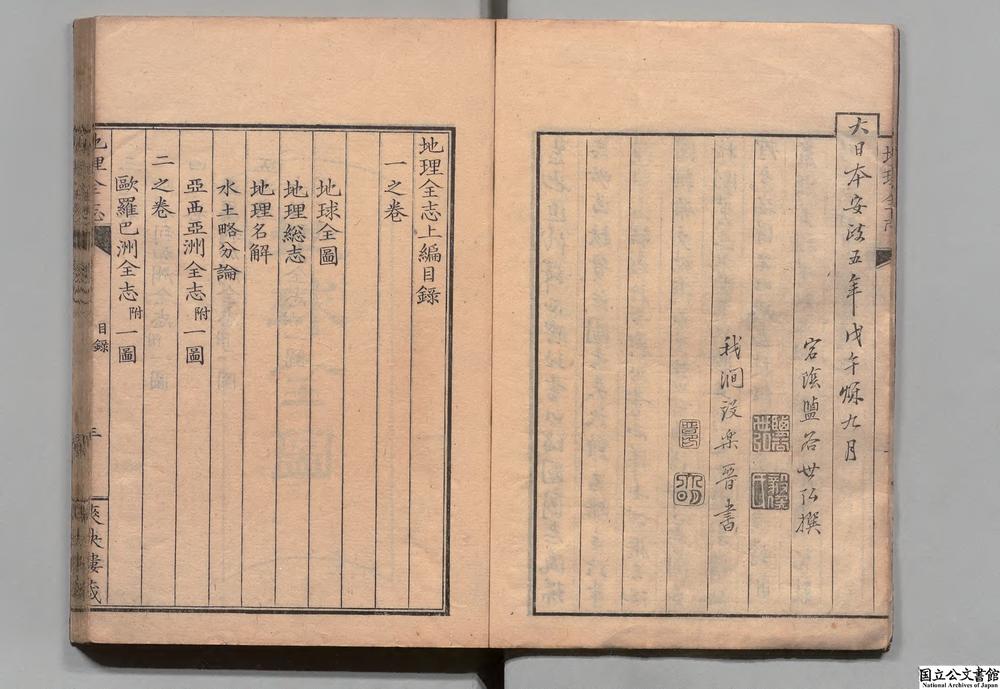 大日本安政五年戊午秌九月
宕陰鹽谷世弘撰
我澗設楽晋書
地理全志上編目錄
一之卷
地球全圖
地理総志
地理名解
水土略分論
亞西亞洲全志附一圖
二之卷
歐羅巴洲全志附一圖
地理全志
目錄
三
爽快樓藏
国立公文書館
National Archives of Japan